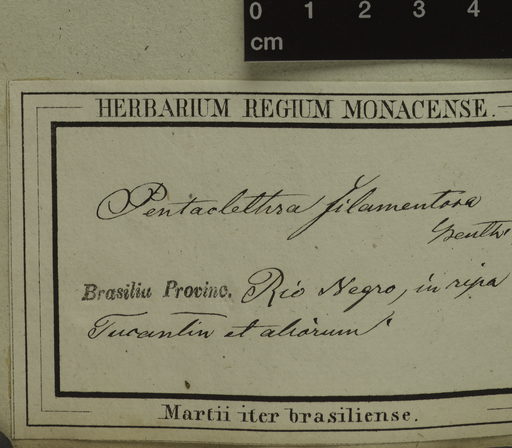 0 1 2 3 4
cm
HERBARIUM REGIUM MONACENSE.
Pentaclethra filamentosa
Benth.
Brasilia Provinc. Rio Negro, in ripa
Tucantin et aliorum
Martii iter brasiliense.